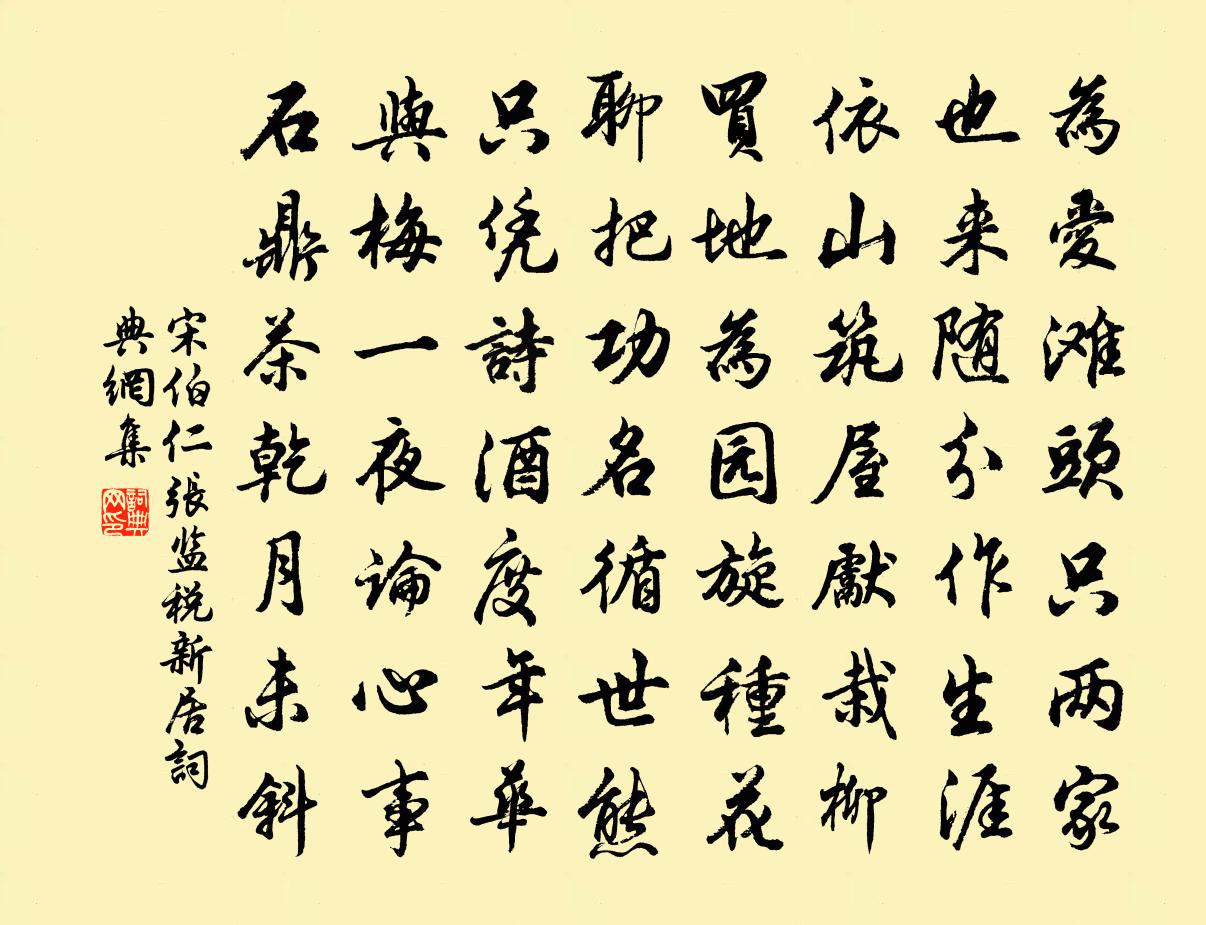 為愛滩頭只两家
也来随分作生涯
依山筑屋獻栽柳
買地為园旋種花
聊把功名循世態
只凭詩酒度年華
與梅一夜論心事
石鼎茶乾月未斜
宋伯仁張监税新居詞
典網集
詞典
网印